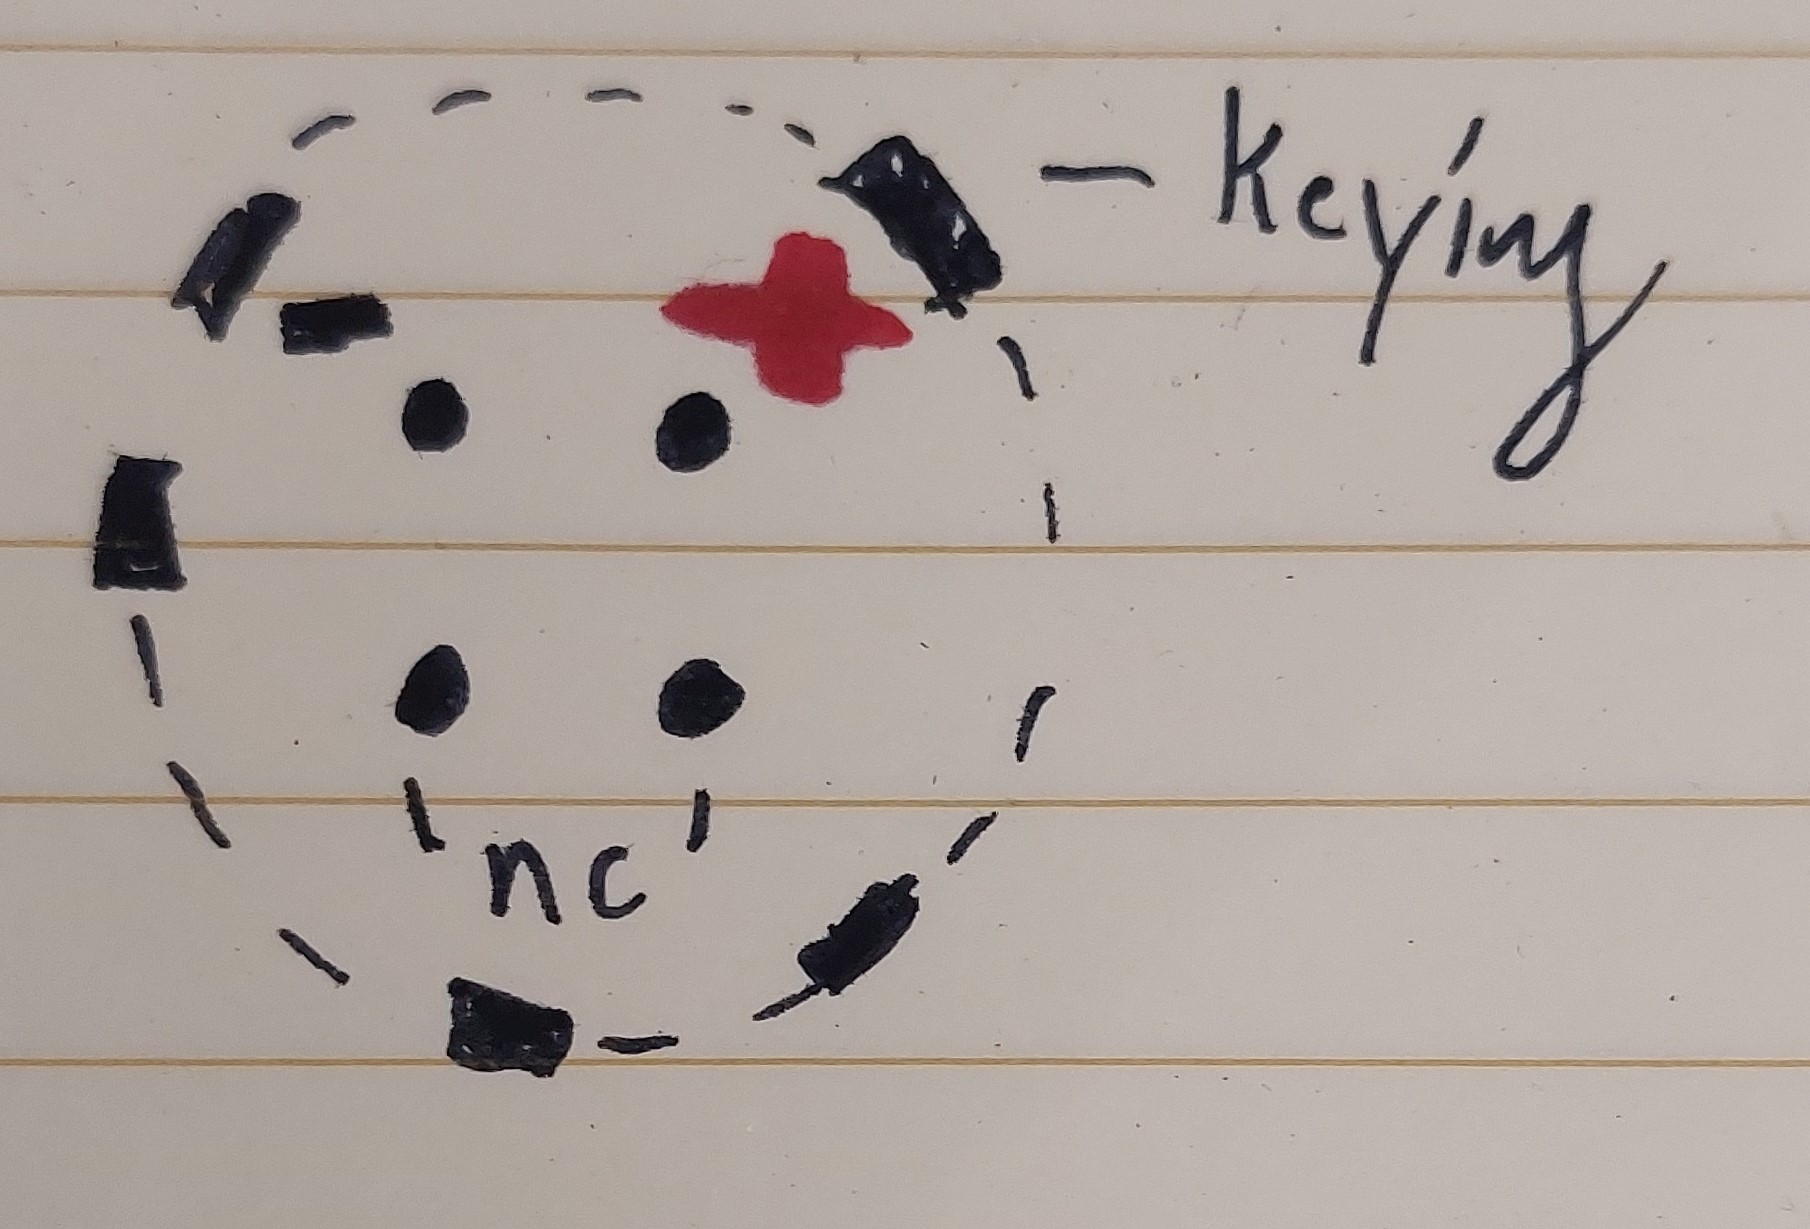 - Keying
nc